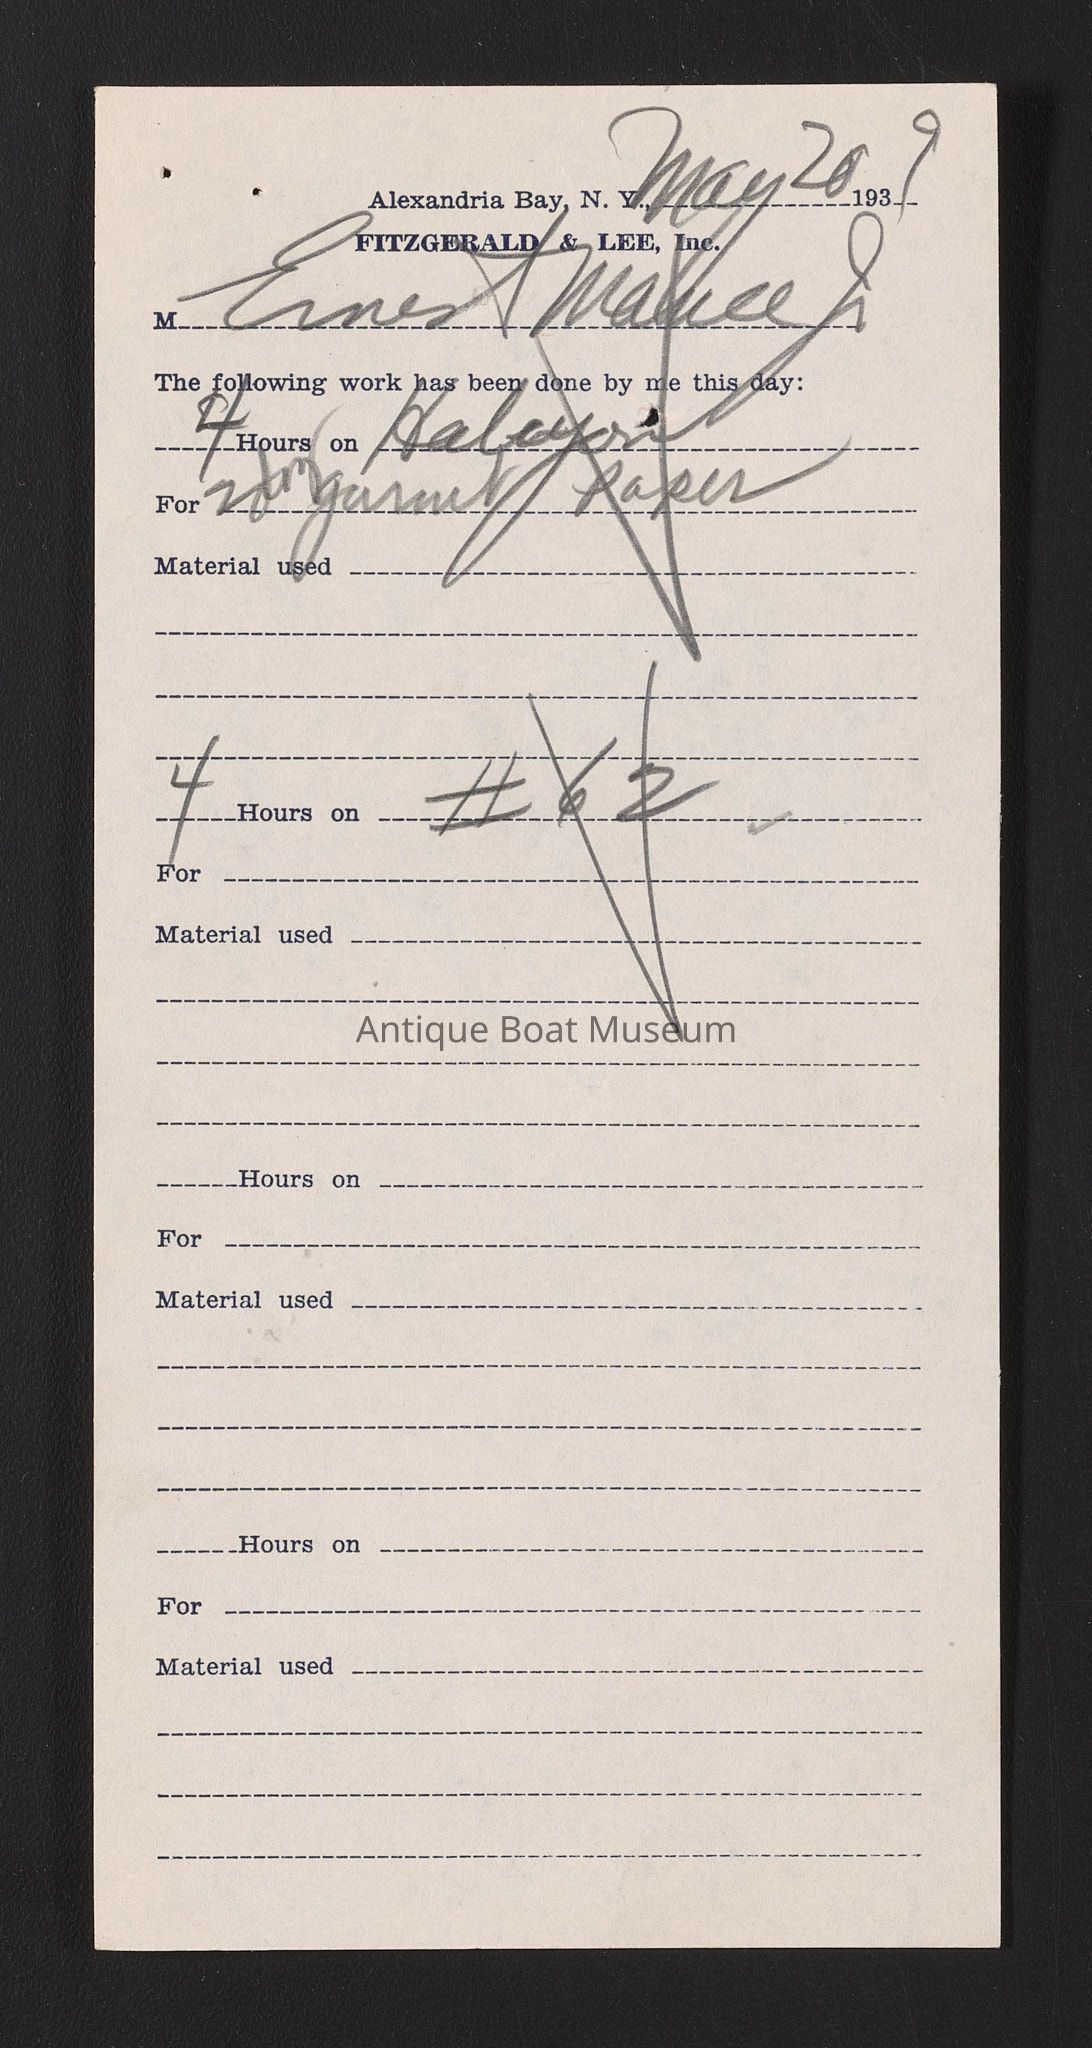 Alexandria Bay, N. Y., May 20 1939
FITZGERALD & LEE, Inc.
M Ernest Jr
The following work has been done by me this day:
4 Hours on Halcyon
For garnet paper
Material used
4 Hours on #62
For
Material used
Antique Boat Museum
Hours on
For
Material used
Hours on
For
Material used